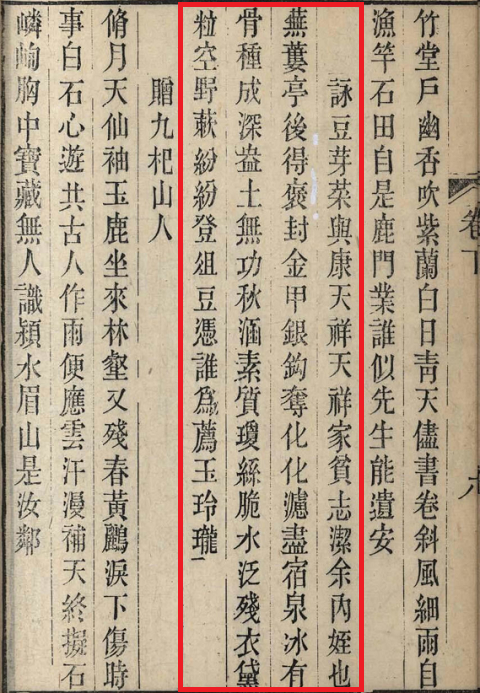 卷下
竹堂戸幽香吹紫蘭白日靑天儘書卷斜風細雨自
漁竿石田自是鹿門業誰似先生能遺安
詠豆芽菜與康天祥天祥家貧志潔余內姪也
蕪蔞亭後得褒封金甲銀鉤奪化化濾盡宿泉冰有
骨種成深盎土無功秋涵素質瓊絲脆水泛殘衣黛
粒空野蔌紛紛登俎豆憑誰爲薦玉玲瓏
贈九杞山人
脩月天仙袖玉鹿坐來林壑又殘春黃鸝淚下傷時
事白石心遊共古人作雨便應雲汗漫補天終擬石
嶙峋胸中寶藏無人識潁水眉山是汝鄰